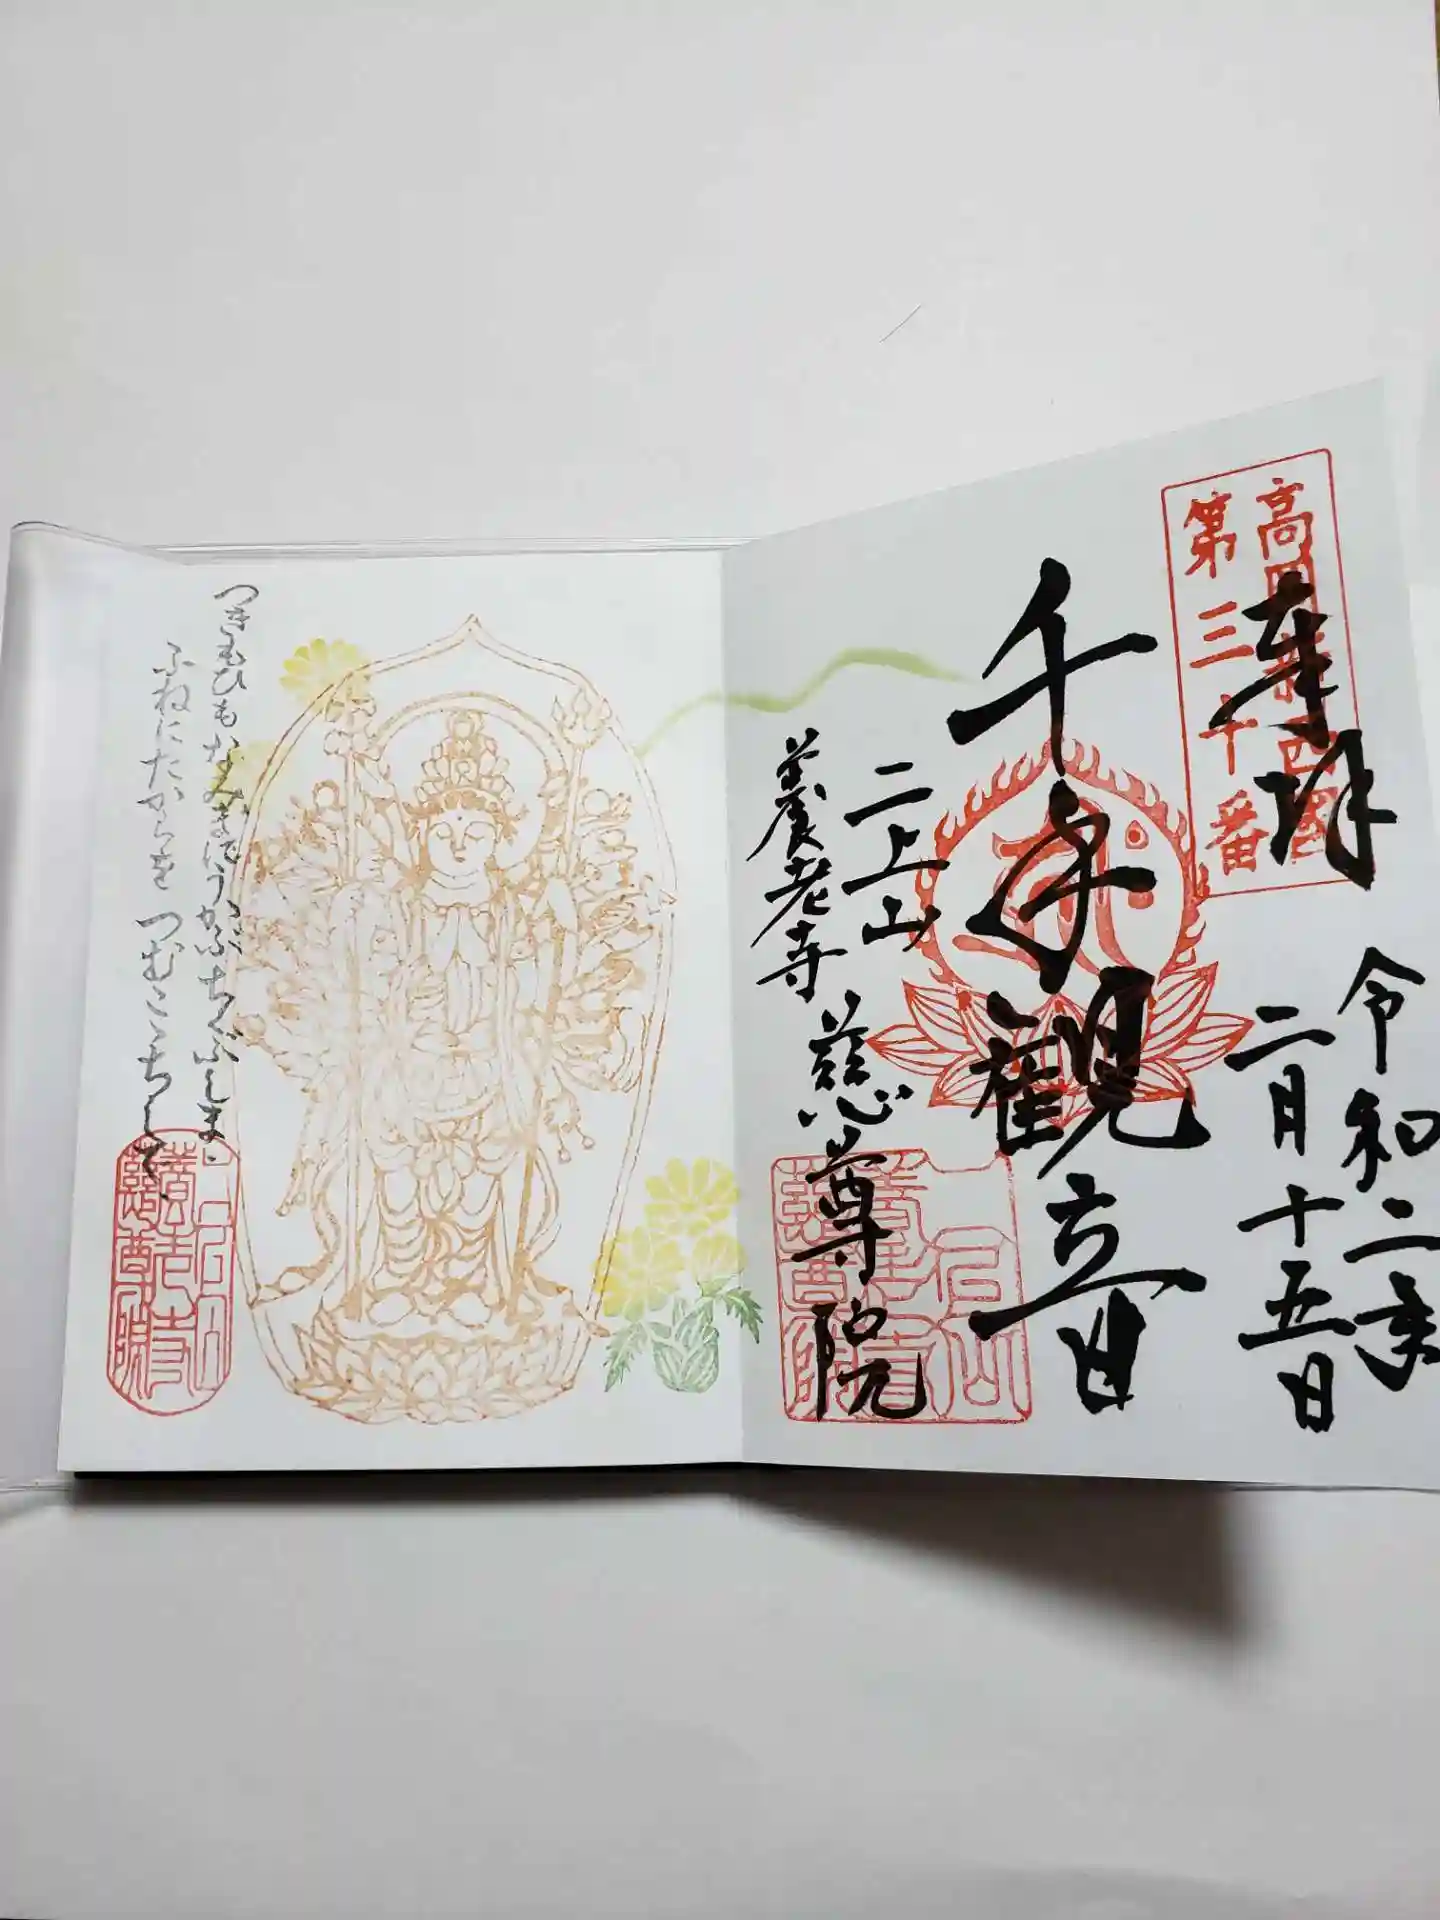 高岡新西國
第三十番
奉拝
令和二年
二月十五日
千手觀音
二上山
養老寺
慈尊院
つきもひもなみまにうかぶちくぶしま
ふねにたからをつむここちして